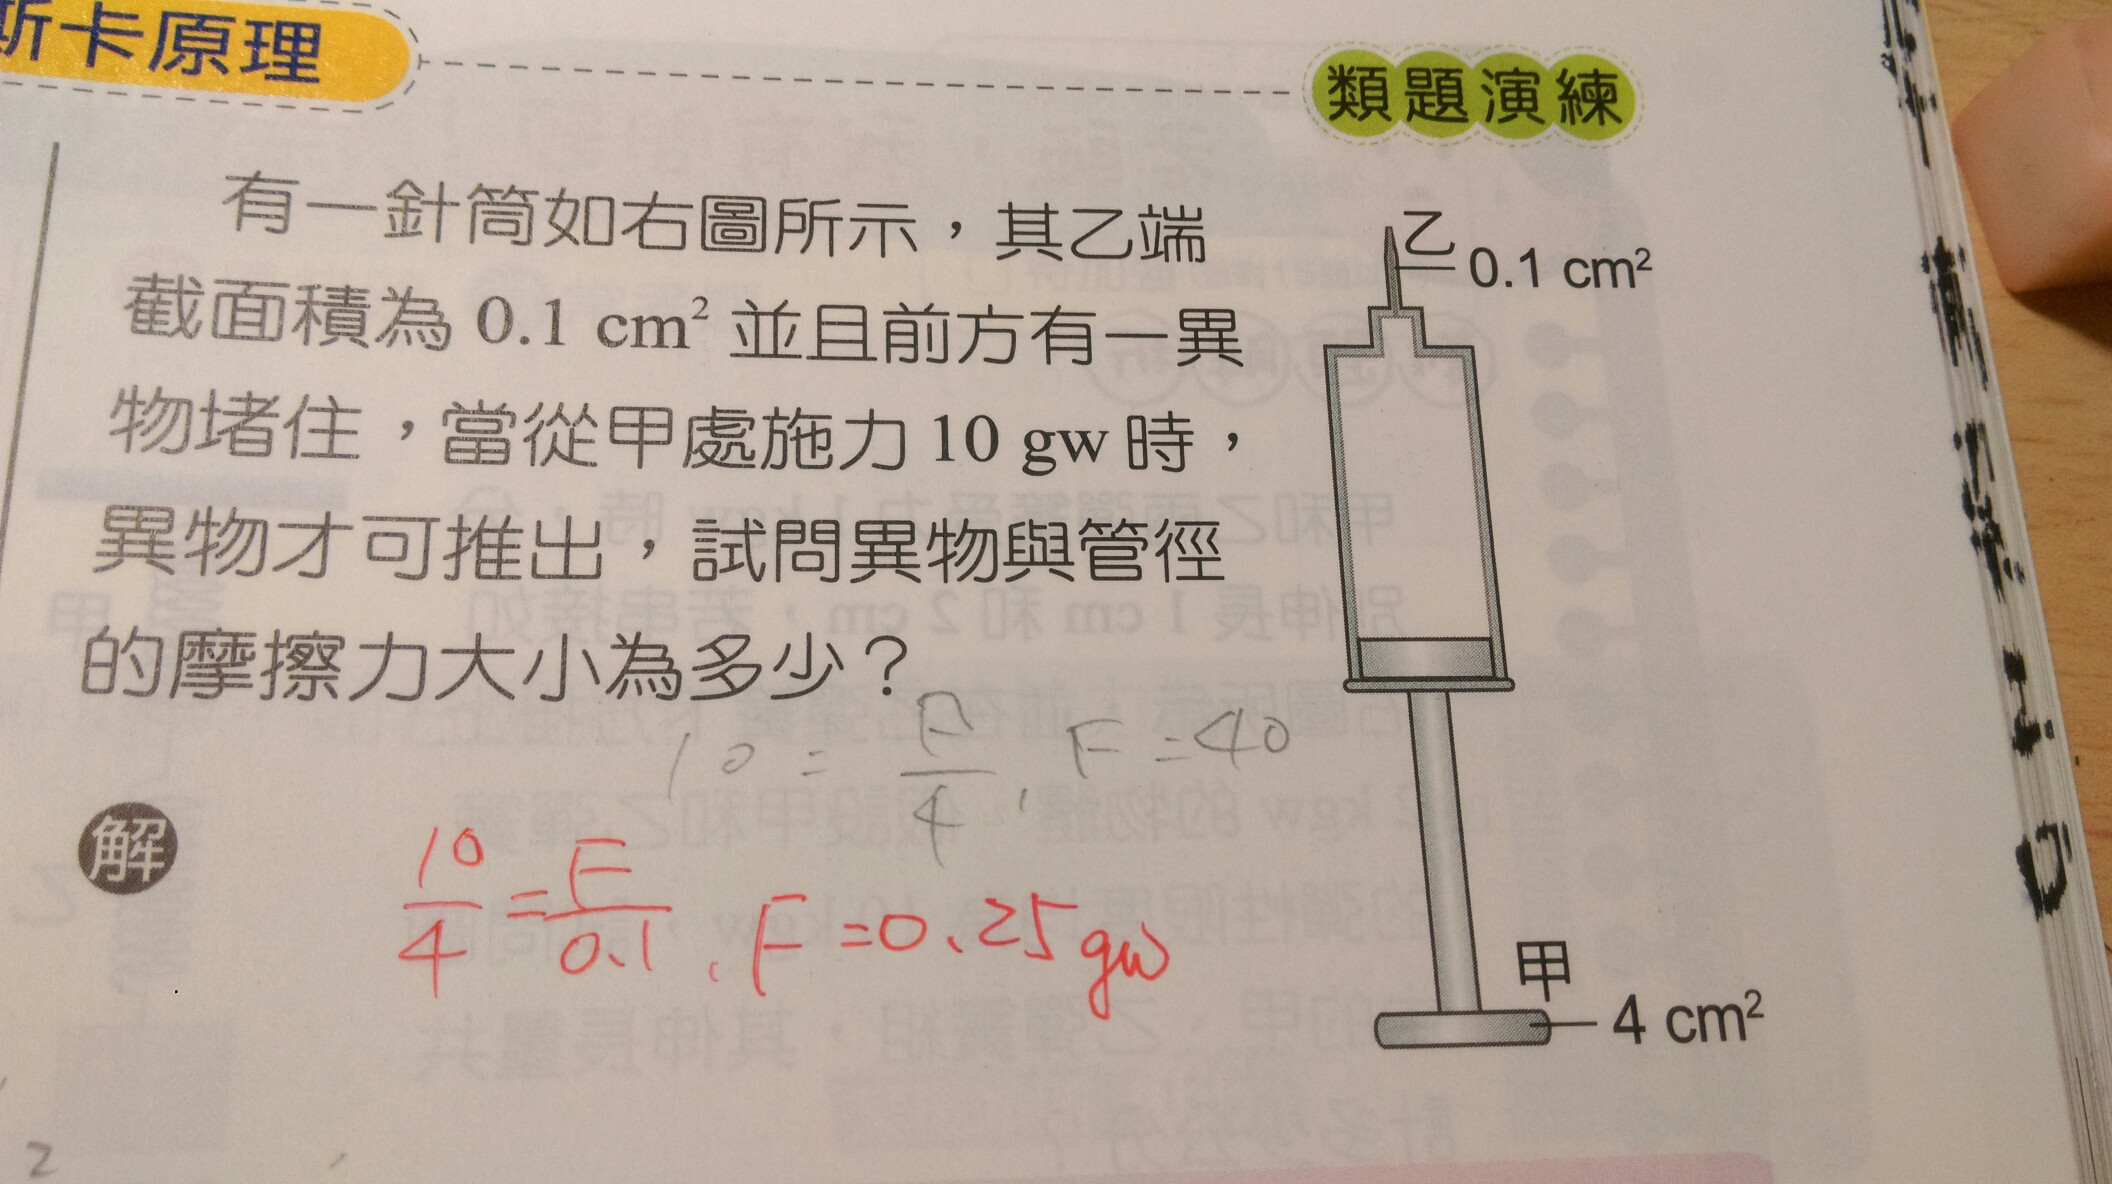 斯卡原理
類題演練
有一針筒如右圖所示，其乙端
截面積為 0.1 cm² 並且前方有一異
物堵住，當從甲處施力 10 gw 時，
異物才可推出，試問異物與管徑
的摩擦力大小為多少？
乙
0.1 cm²
甲
4 cm²
10 = F/4, F = 40
解
10/4 = F/0.1, F = 0.25 gw
2